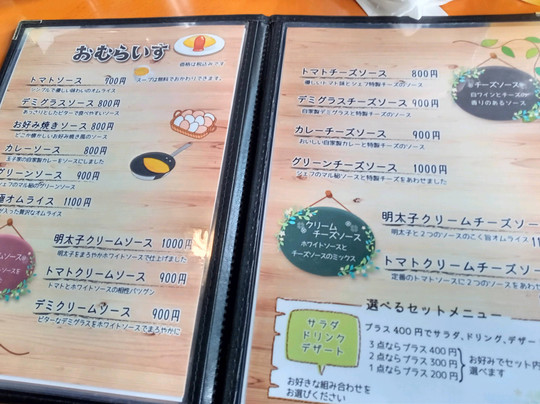 おむらいす
価格は税込みです。
スープは無料でおかわりできます。
トマトソース 900円
シンプルで優しい味わいのオムライス
デミグラスソース 800円
あっさりとしたビターで食べやすいソース
お好み焼きソース 800円
どこか懐かしいお好み焼き風のソース
カレーソース 800円
玉子家の自家製カレーをソースにしました
グリーンソース 900円
シェフのマル秘のグリーンソース
オムライス 1100円
が入った贅沢なオムライス
明太子クリームソース 1000円
明太子をまろやかホワイトソースで仕上げました
トマトクリームソース 900円
トマトとホワイトソースの相性バツグン
デミクリームソース 900円
ビターなデミグラスをホワイトソースでまろやかに
トマトチーズソース 800円
優しいトマト味と特製チーズのソース
デミグラスチーズソース 900円
自家製デミグラスと特製チーズのソース
カレーチーズソース 900円
おいしい自家製カレーと特製チーズのソース
グリーンチーズソース 1000円
シェフのマル秘ソースと特製チーズをあわせました
チーズソース
白ワインとチーズの
香りのあるソース
クリーム
チーズソース
ホワイトソースと
チーズソースのミックス
明太子クリームチーズソー
明太子と2つのソースのこく旨オムライス
トマトクリームチーズソー
定番のトマトソースに2つのソースをあわせ
選べるセットメニュー
プラス400円でサラダ、ドリンク、デザー
サラダ
ドリンク
デザート
3点ならプラス400円
2点ならプラス300円
1点ならプラス200円
お好みでセット内
選べます
お好きな組み合わせを
お選びください